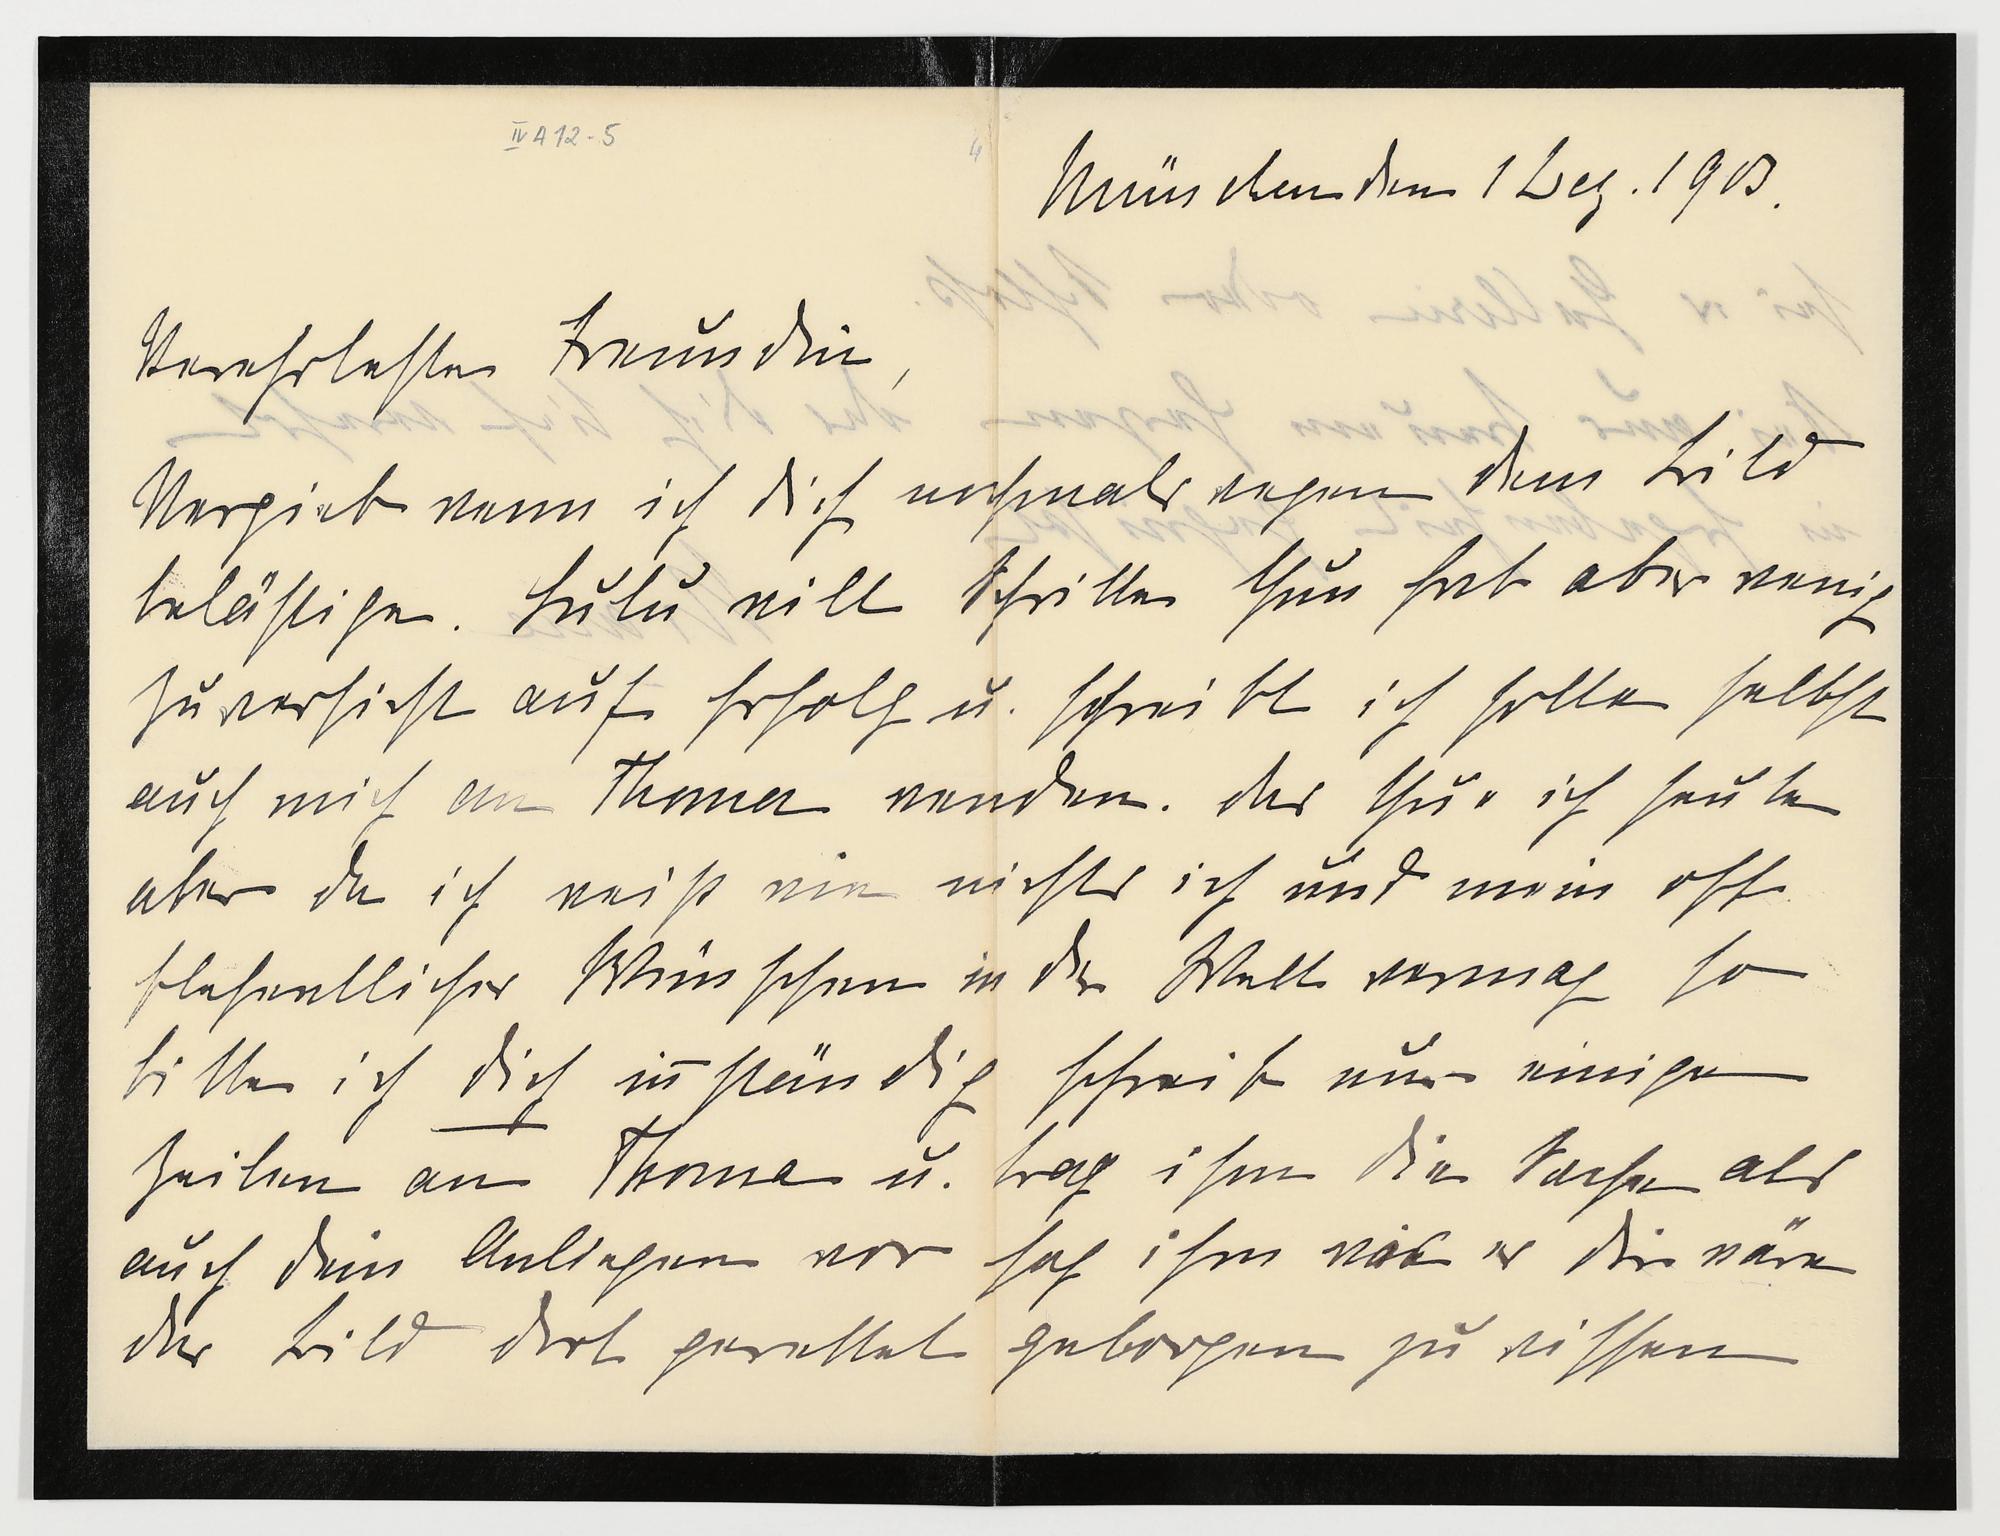 IV A 12-5
München den 1 Dez. 1903.
Verehrteste Freundin,
Vergieb wenn ich dich nochmals wegen dem Bild
belästige. Lulu will Schritte thun hat aber wenig
zuversicht auf Erfolg u. schreibt ich sollte selbst
auch mich an Thoma wenden. das thue ich heute
aber da ich weiß wie nichts ich und mein oft
flehentliches Wünschen in der Welt vermag so
bitte ich dich inständig schreib nur einige
Zeilen an Thoma u. trag ihm die Sache als
auch dein Anliegen vor sag ihm wie es dir wäre
das Bild dort gerettet geborgen zu wissen